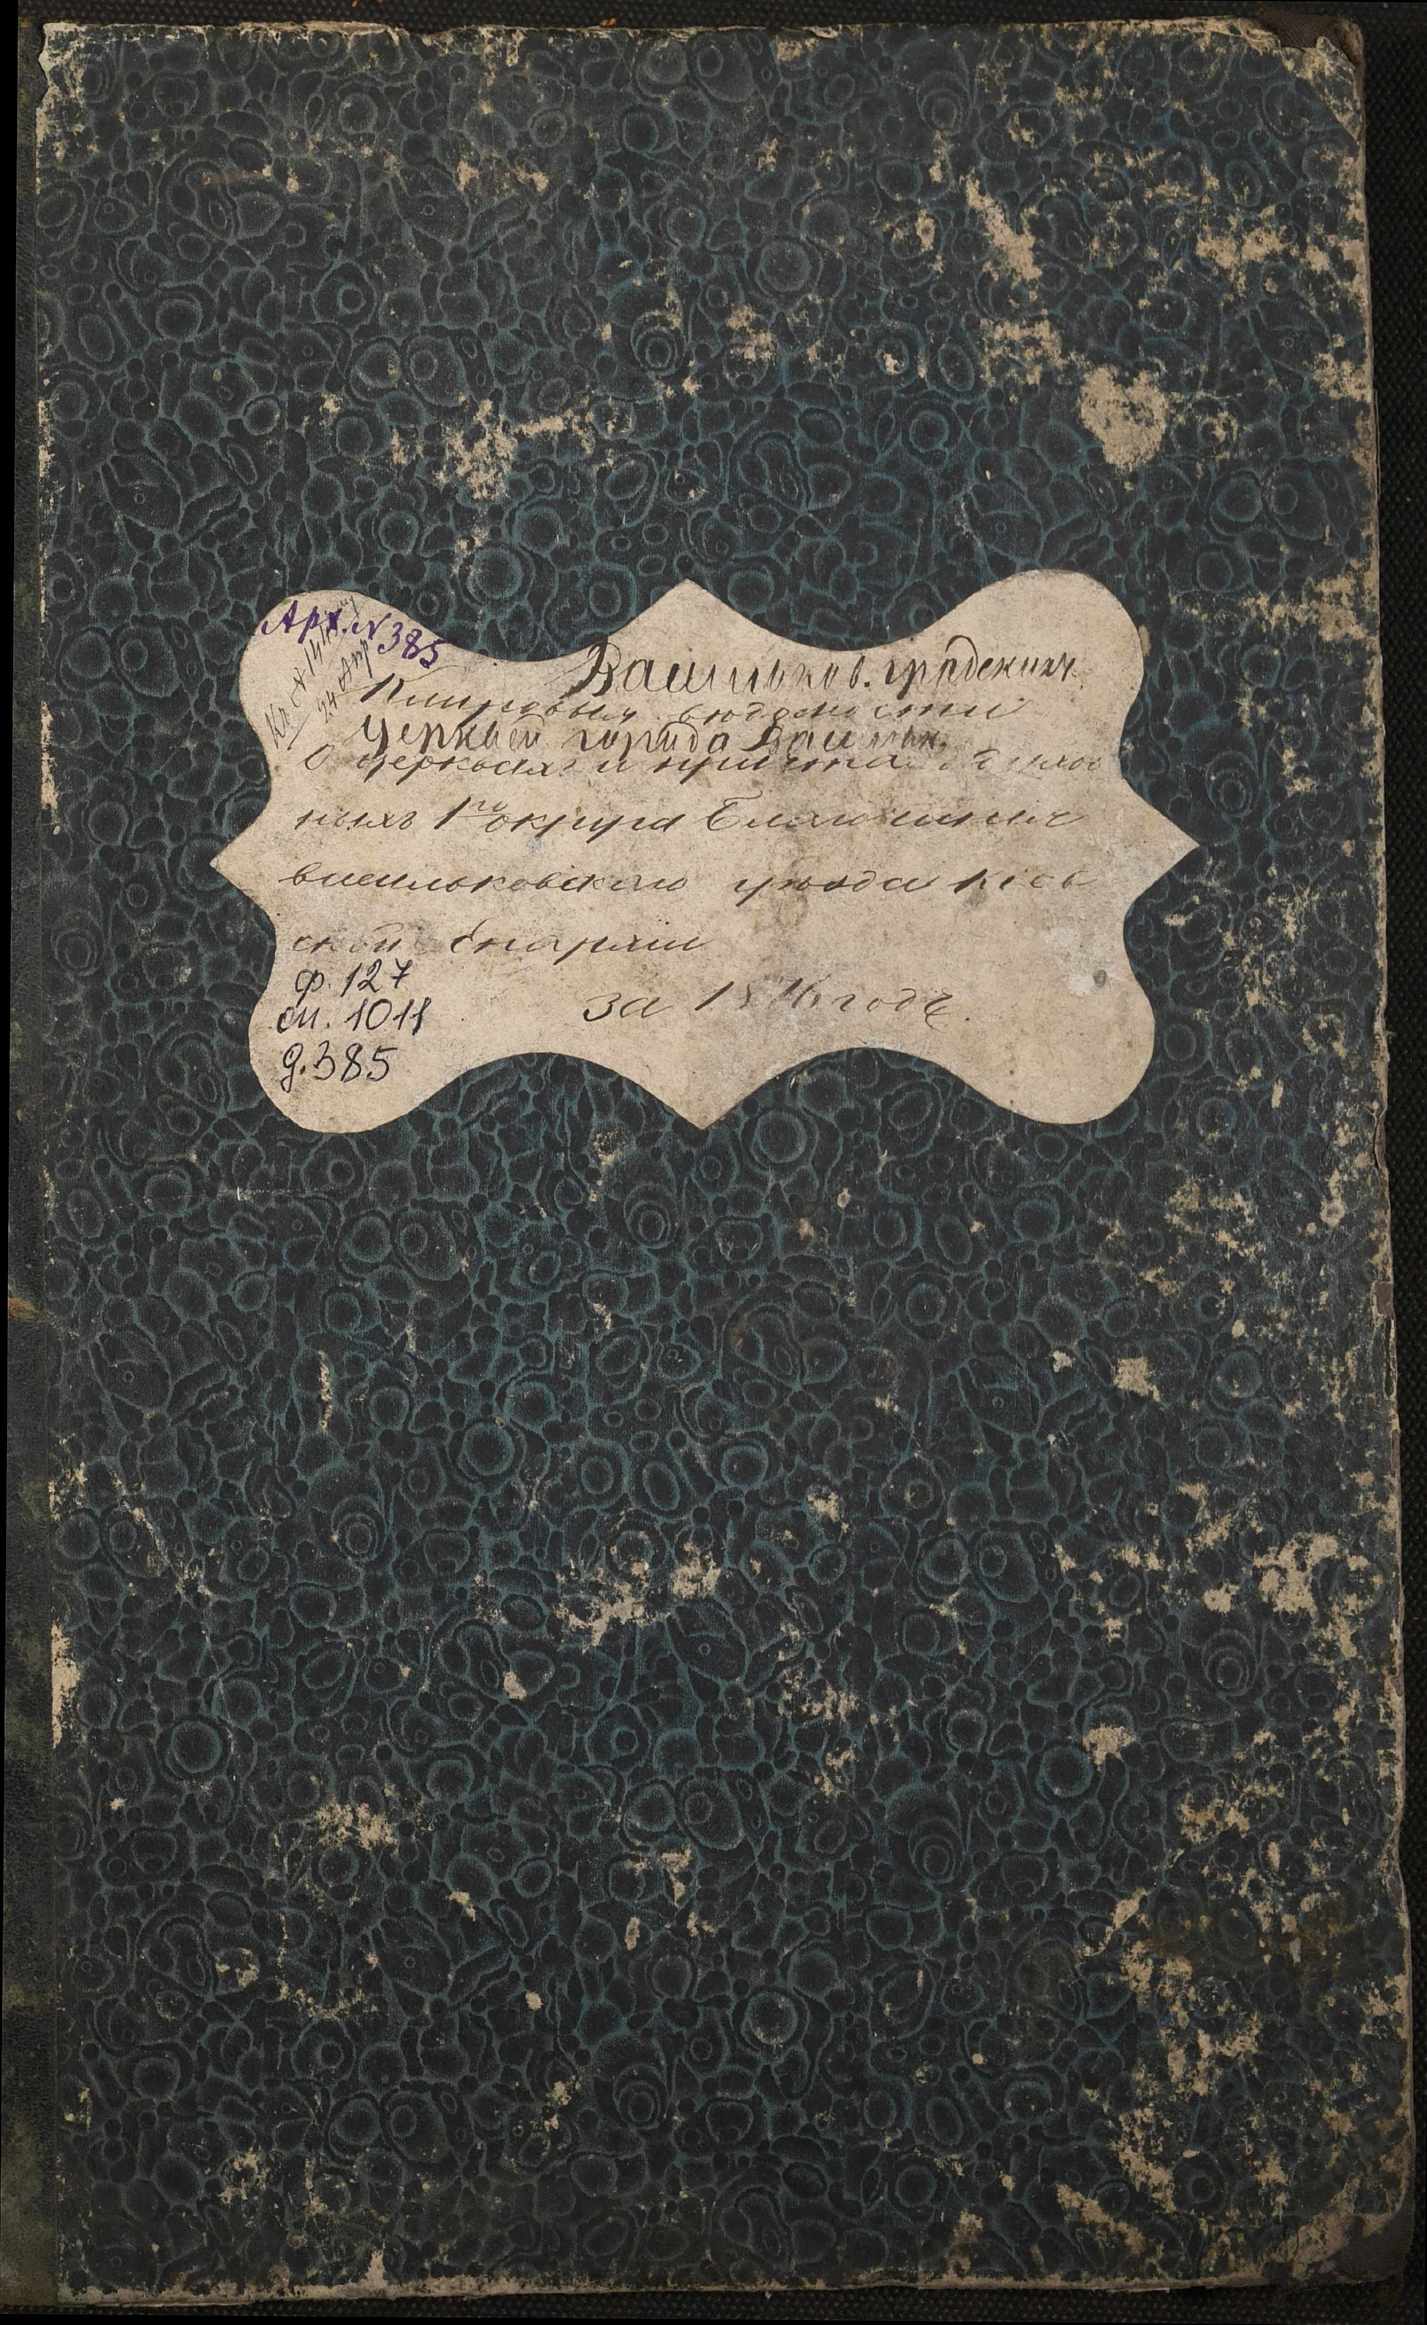 Арх. № 385
24 Апр
Васильков. градских
Клировыя вѣдомости
Церквей города Васильк.
О церквахъ и причтахъ
ныхъ 1го округа Благочинія
васильковскаго уѣзда Кіев
ской Епархіи
за 18 6 годъ.
ф. 127
оп. 1011
д. 385